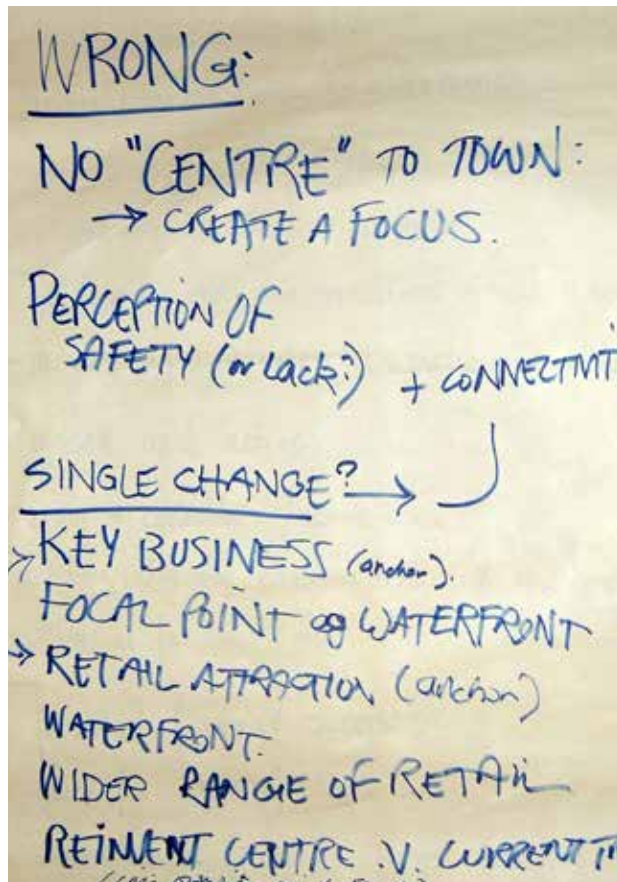 WRONG:
NO "CENTRE" TO TOWN:
→ CREATE A FOCUS.
PERCEPTION OF
SAFETY (or Lack?) + CONNECTIVIT
SINGLE CHANGE? →
→ KEY BUSINESS (anchor).
FOCAL POINT eg WATERFRONT
→ RETAIL ATTRACTION (anchor)
WATERFRONT.
WIDER RANGE OF RETAIL
REINVENT CENTRE .V. CURRENT